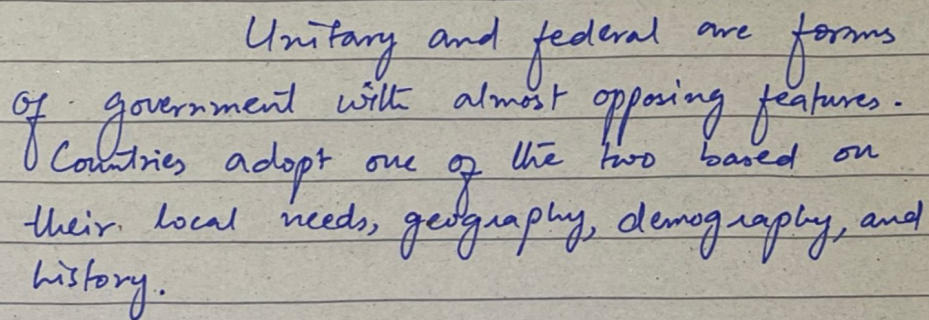 Unitary and federal are forms
of government with almost opposing features.
Countries adopt one of the two based on
their local needs, geography, demography, and
history.